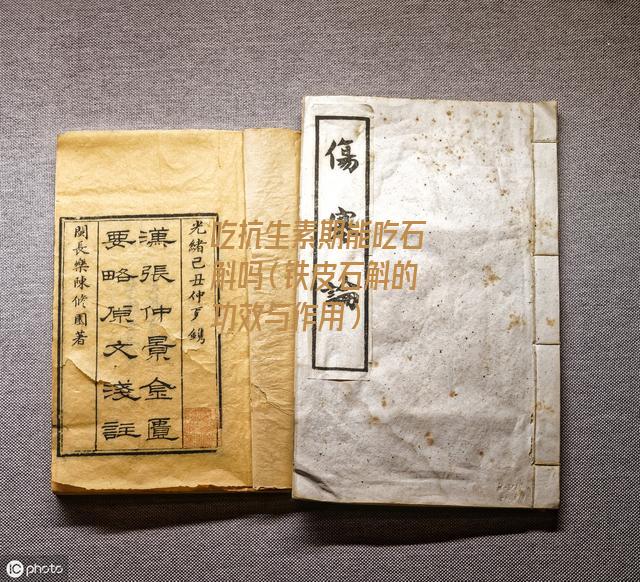 傷寒論
光緒己丑仲夏鐫
漢張仲景金匱
要略原文淺註
閩長樂陳修園著
吃抗生素期能吃石
斛吗(铁皮石斛的
功效与作用)
IC photo